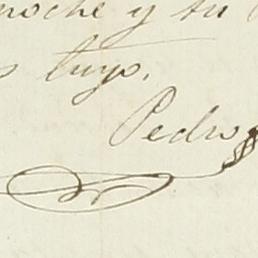 noche y tu
tuyo.
Pedro